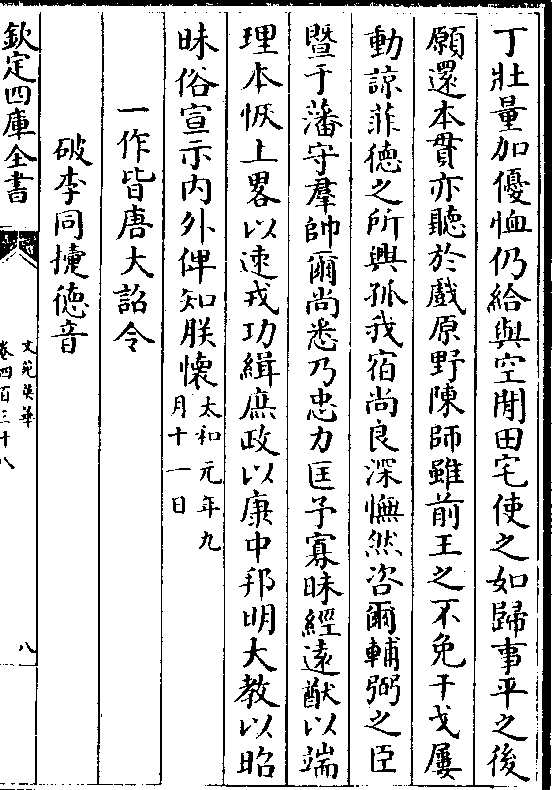 丁壯量加優恤仍給與空閒田宅使之如歸事平之後
願還本貫亦聽於戲原野陳師雖前王之不免干戈屢
動諒菲德之所興孤我宿尚良深憮然咨爾輔弼之臣
暨于藩守羣帥爾尚悉乃忠力匡予寡昧經遠猷以端
理本恢上畧以速戎功緝庶政以康中邦明大教以昭
昧俗宣示内外俾知朕懷太和元年九月十一日
一作皆唐大詔令
破李同㨗德音
欽定四庫全書
文苑英華
卷四百三十八
八